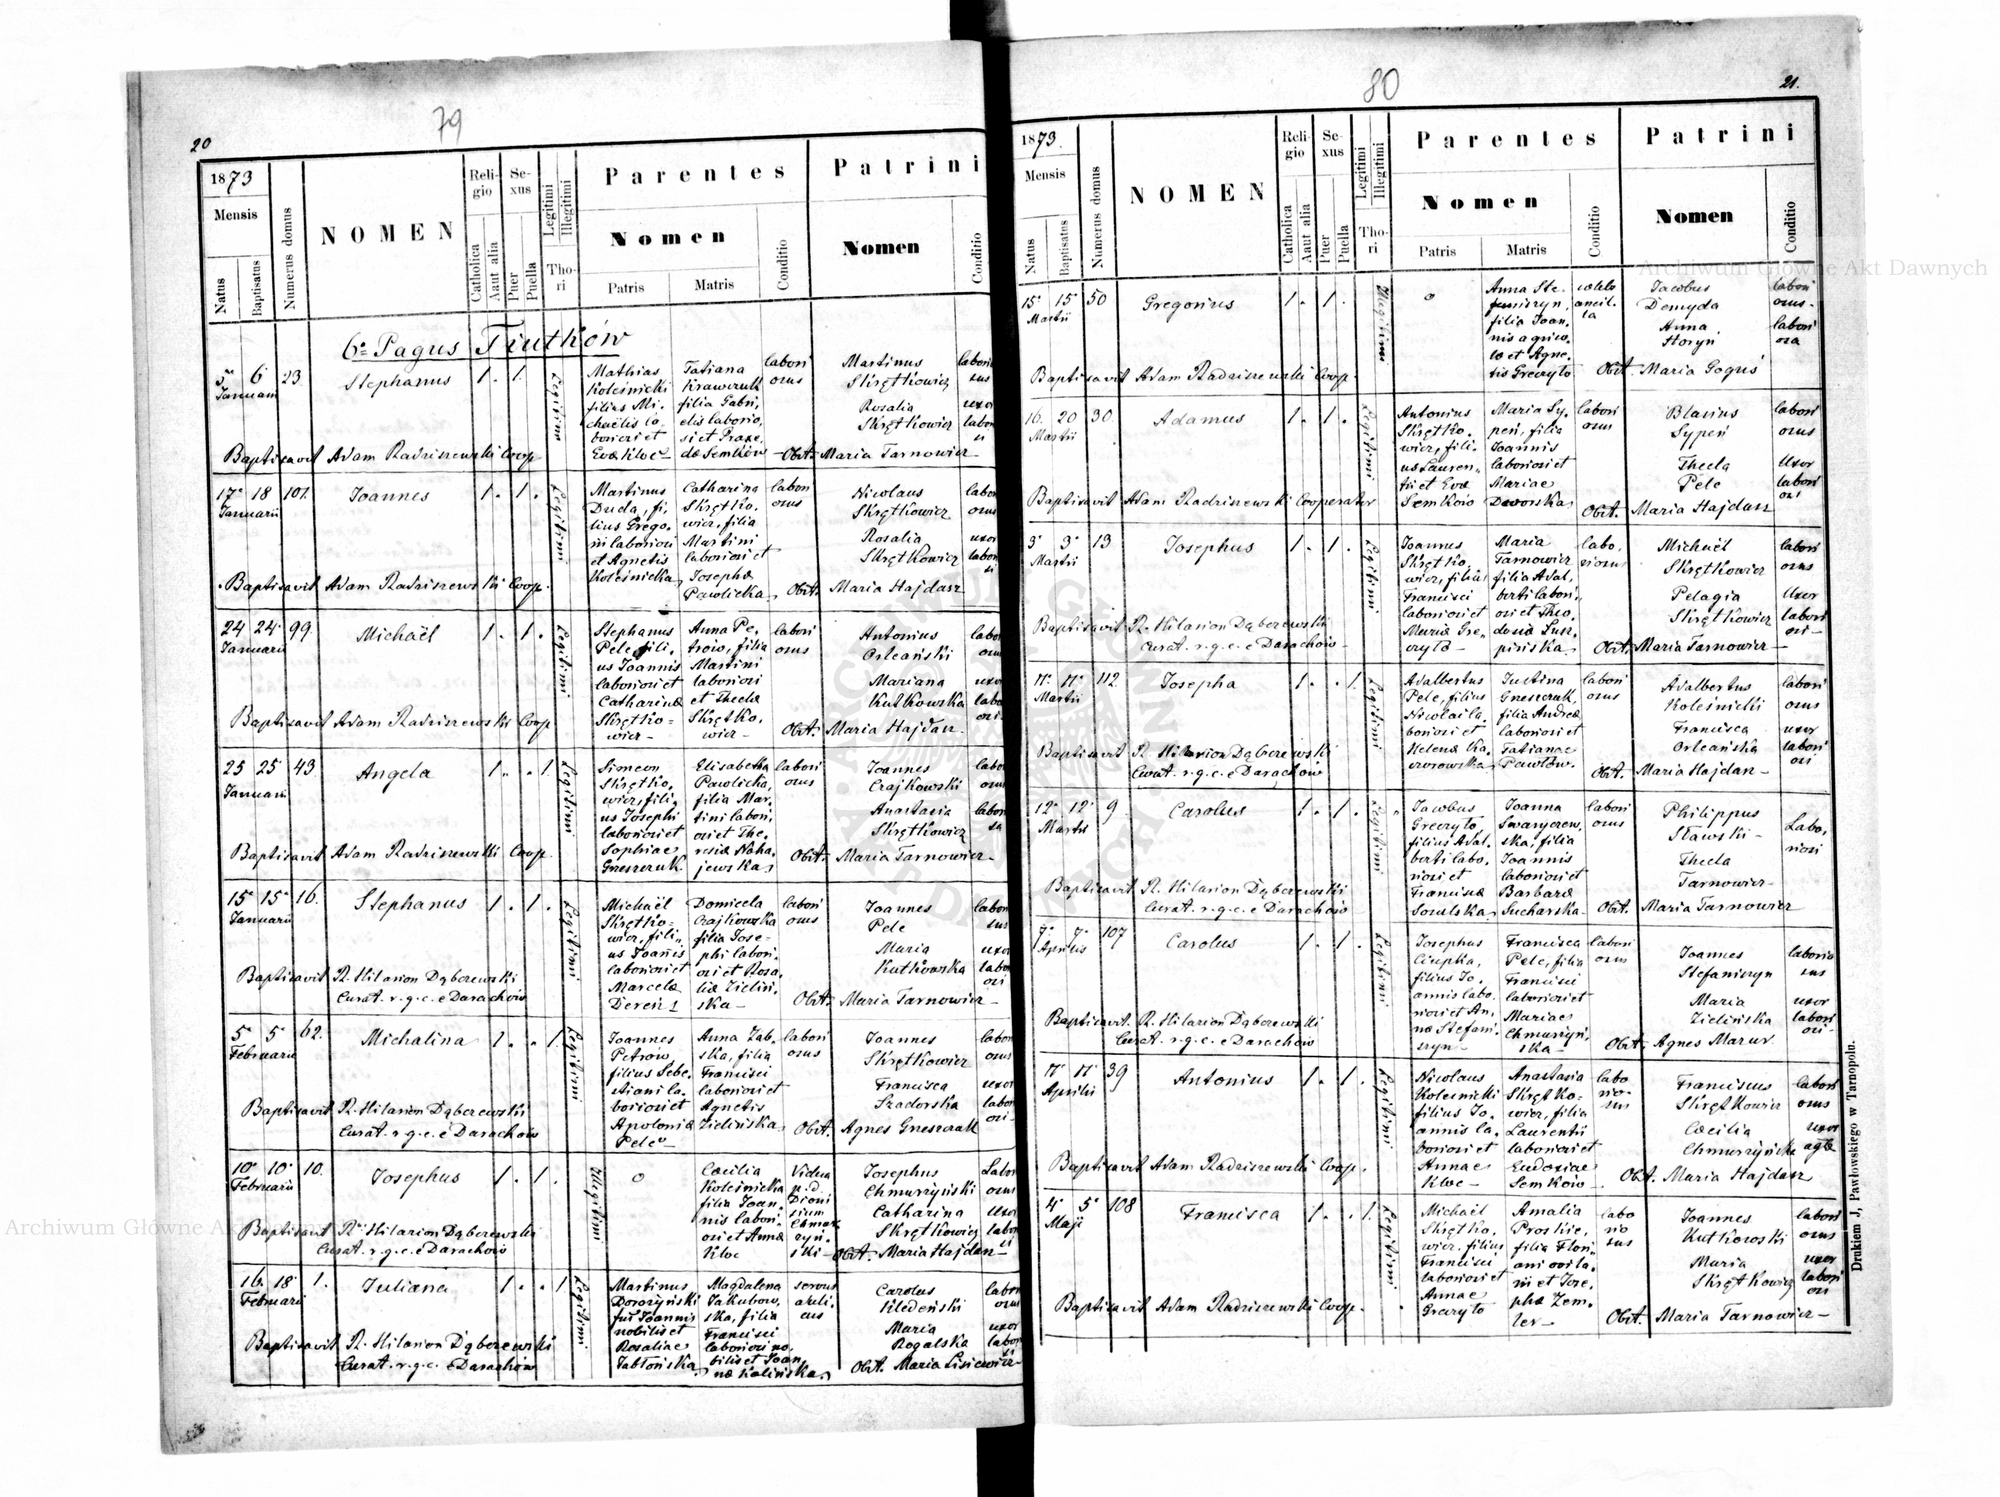 79
20
1873
Mensis
Natus
Baptisatus
Numerus domus
NOMEN
Religio
Catholica
Aaut alia
Sexus
Puer
Puella
Legitimi
Illegitimi
Thori
Parentes
Nomen
Patris
Matris
Conditio
Patrini
Nomen
Conditio
6º Pagus Tiutków
5ª 6 23 Stephanus 1. 1.
Januarii
Legitimi
Mathias
Koleśnicki
filius Mi-
chaëlis la-
boriosi et
Evæ Kloc
Tatiana
Krawczuk
filia Gabri,
elis laborio,
si et Praxe,
dæ Semków
labori
osus
Martinus
Skrętkowicz
Rosalia
Skrętkowicz
Baptisavit Adam Radziszewski Coop
Obst. Maria Tarnowicz
17ª 18 101. Joannes 1. 1.
Januarii
Legitimi
Martinus
Duda, fi,
lius Grego,
rii laboriosi
et Agnetis
Koleśnicka
Catharina
Skrętko,
wicz, filia
Martini
laboriosi et
Josephæ
Pawlicka
labori
osus
Nicolaus
Skrętkowicz
Rosalia
Skrętkowicz
Baptisavit Adam Radziszewski Coop.
Obst. Maria Hajdasz
24 24 99. Michaël 1. 1.
Januarii
Legitimi
Stephanus
Pele, fili,
us Joannis
laboriosi et
Catharinæ
Skrętko-
wicz-
Anna Pe,
trów, filia
Martini
laboriosi
et Theclæ
Skrętko,
wicz-
labori
osus
Antonius
Orleański
Mariana
Kutkowska
Baptisavit Adam Radziszewski Coop
Obst. Maria Hajdasz
25 25 43 Angela 1. 1.
Januarii
Legitimi
Simeon
Skrętko,
wicz, fili,
us Josephi
laboriosi et
Sophiae
Gneszczuk
Elisabetha
Pawlicka,
filia Mar,
tini labori,
osi et The,
resiæ Naha,
jewska
labori
osus
Joannes
Czajkowski
Anastasia
Skrętkowicz
Baptisavit Adam Radziszewski Coop.
Obst. Maria Tarnowicz
15ª 15ª 16. Stephanus 1. 1.
Januarii
Legitimi
Michaël
Skrętko-
wicz, fili,,
us Joañis
laboriosi et
Marcelæ
Dereń
Domicela
Czajkowska
filia Jose-
phi labori,
osi et Rosa,
liæ Zieliń,
ska-
labori
osus
Joannes
Pele
Maria
Kutkowska
Baptisavit R. Hilarion Dąberewski
Curat. r.g.c. e Darachów
Obst. Maria Tarnowicz
5ª 5ª 62. Michalina 1. 1.
Februarii
Legitimi
Joannes
Petrów
filius Seba,
stiani la,
boriosi et
Apoloniæ
Pele
Anna Zab,
ska, filia
Francisci
laboriosi et
Agnetis
Zielińska
labori
osus
Joannes
Skrętkowicz
Francisca
Szadorska
Baptisavit R. Hilarion Dąberewski
Curat. r.g.c. e Darachów
Obst. Agnes Gneszczuk
10ª 10ª 10. Josephus 1. 1.
Februarii
Illegitimi
0
Cæcilia
Koleśnicka
filia Joan,
nis labori,
osi et Annæ
Kloc
Vidua
p.d.
Dioni
sium
Josephus
Chmurzyński
Catharina
Skrętkowicz
Baptisavit R. Hilarion Dąberewski
Curat. r.g.c. e Darachów
Obst. Maria Hajdasz
16. 18 1. Juliana 1. 1.
Februarii
Legitimi
Martinus
Dorożyński
fius Joannis
nobilis et
Rosaliae
Jabłońska
Magdalena
Jakubow,
ska, filia
Francisci
laboriosi no,
bilis et Joan,
næ Kalińska
servus
aulicus
Carolus
Kledeński
Maria
Rogalska
Baptisavit R. Hilarion Dąberewski
Curat. r.g.c. e Darachów
Obst. Maria Lisiewicz
80
21.
1873.
Mensis
Natus
Baptisatus
Numerus domus
NOMEN
Religio
Catholica
Aaut alia
Sexus
Puer
Puella
Legitimi
Illegitimi
Thori
Parentes
Nomen
Patris
Matris
Conditio
Patrini
Nomen
Conditio
15ª 15ª 50 Gregorius 1. 1.
Martii
Illegitimi
0
Anna Ste,
filia Joan,
nis agrico,
læ et Agne,
tis Greczyło
Jacobus
Demyda
Anna
Horyń
Baptisavit Adam Radziszewski Coop.
Obst. Maria Goguś
16. 20 30. Adamus 1. 1.
Martii
Legitimi
Antonius
Skrętko,
wicz, fili,
us Lauren,,
tii et Evæ
Semków
Maria Sy,
peń, filia
Joannis
laboriosi et
Mariae
Dworska
labori
osus
Blasius
Sypeń
Thecla
Pele
labori
osus
Uxor
labori
osi
Baptisavit Adam Radziszewski Cooperator
Obst. Maria Hajdasz
3ª 3ª 13 Josephus 1. 1.
Martii
Legitimi
Joannes
Skrętko,
wicz, filius
Francisci
laboriosi et
Mariæ Gre,
czyło
Maria
Tarnowicz
filia Adal,
berti labori,
osi et Theo,
dosiæ Lusz,
pińska
labo,
riosus
Michaël
Skrętkowicz
Pelagia
Skrętkowicz
labori
osus
Uxor
labori
osi
Baptisavit R. Hilarion Dąberewski
Curat. r.g.c. e Darachów
Obst. Maria Tarnowicz
11ª 11ª 112. Josepha 1. 1.
Martii
Legitimi
Adalbertus
Pele, filius
Nicolai la,
boriosi et
Helenæ Ka,
Justina
Gneszczuk,
filia Andreæ
laboriosi et
Tatianae
Pawłów
labori
osus
Adalbertus
Koleśnicki
Francisca
Orleańska
labori
osus
uxor
labori
osi
Baptisavit R. Hilarion Dąberewski
Curat. r.g.c. e Darachów
Obst. Maria Hajdasz
12ª 12ª 9 Carolus 1. 1.
Martii
Legitimi
Jacobus
Greczyło
filius Adal,
berti labo,
riosi et
Franciscæ
Joanna
filia
Joannis
laboriosi et
Barbaræ
Sucharska
labori
osus
Philippus
Sławski
Thecla
Tarnowicz
Labo,
riosi
Baptisavit R. Hilarion Dąberewski
Curat. r.g.c. e Darachów
Obst. Maria Tarnowicz
7ª 7ª 107 Carolus 1. 1.
Aprilis
Legitimi
Josephus
Ciupka,
filius Jo,
annis labo,
riosi et An,
næ Stefani,
szyn
Francisca
Pele, filia
Francisci
laboriosi et
Mariae
Chmurzyń,
ska
labori
osus
Joannes
Stefaniszyn
Maria
Zielińska
uxor
labori
osi
Baptisavit. R. Hilarion Dąberewski
Curat. r.g.c. e Darachów
Obst. Agnes Mazur
11ª 11ª 39 Antonius 1. 1.
Aprilis
Legitimi
Nicolaus
Koleśnicki
filius Jo,
annis la,
boriosi et
Annae
Kloc
Anastasia
Skrętko-
wicz, filia
Laurentii
laboriosi et
Eudoxiae
Semków
labo
rio-
sus
Franciscus
Skrętkowicz
Cæcilia
Chmurzyńska
labori
osus
uxor
Baptisavit Adam Radziszewski Coop.
Obst. Maria Hajdasz
4ª 5ª 108 Francisca 1. 1.
Maji
Legitimi
Michaël
Skrętko,
wicz, filius
Francisci
laboriosi et
Annae
Greczyło
Amalia
filia Flori,,
ani
et Jose,
phæ Zem,
ler
labo
rio
sus
Joannes
Kutkowski
Maria
Skrętkowicz
labori
osus
uxor
labori
osi
Baptisavit Adam Radziszewski Coop.
Obst. Maria Tarnowicz
Drukiem J. Pawłowskiego w Tarnopolu.
Archiwum Główne Akt Dawnych
Archiwum Główne Akt Dawnych